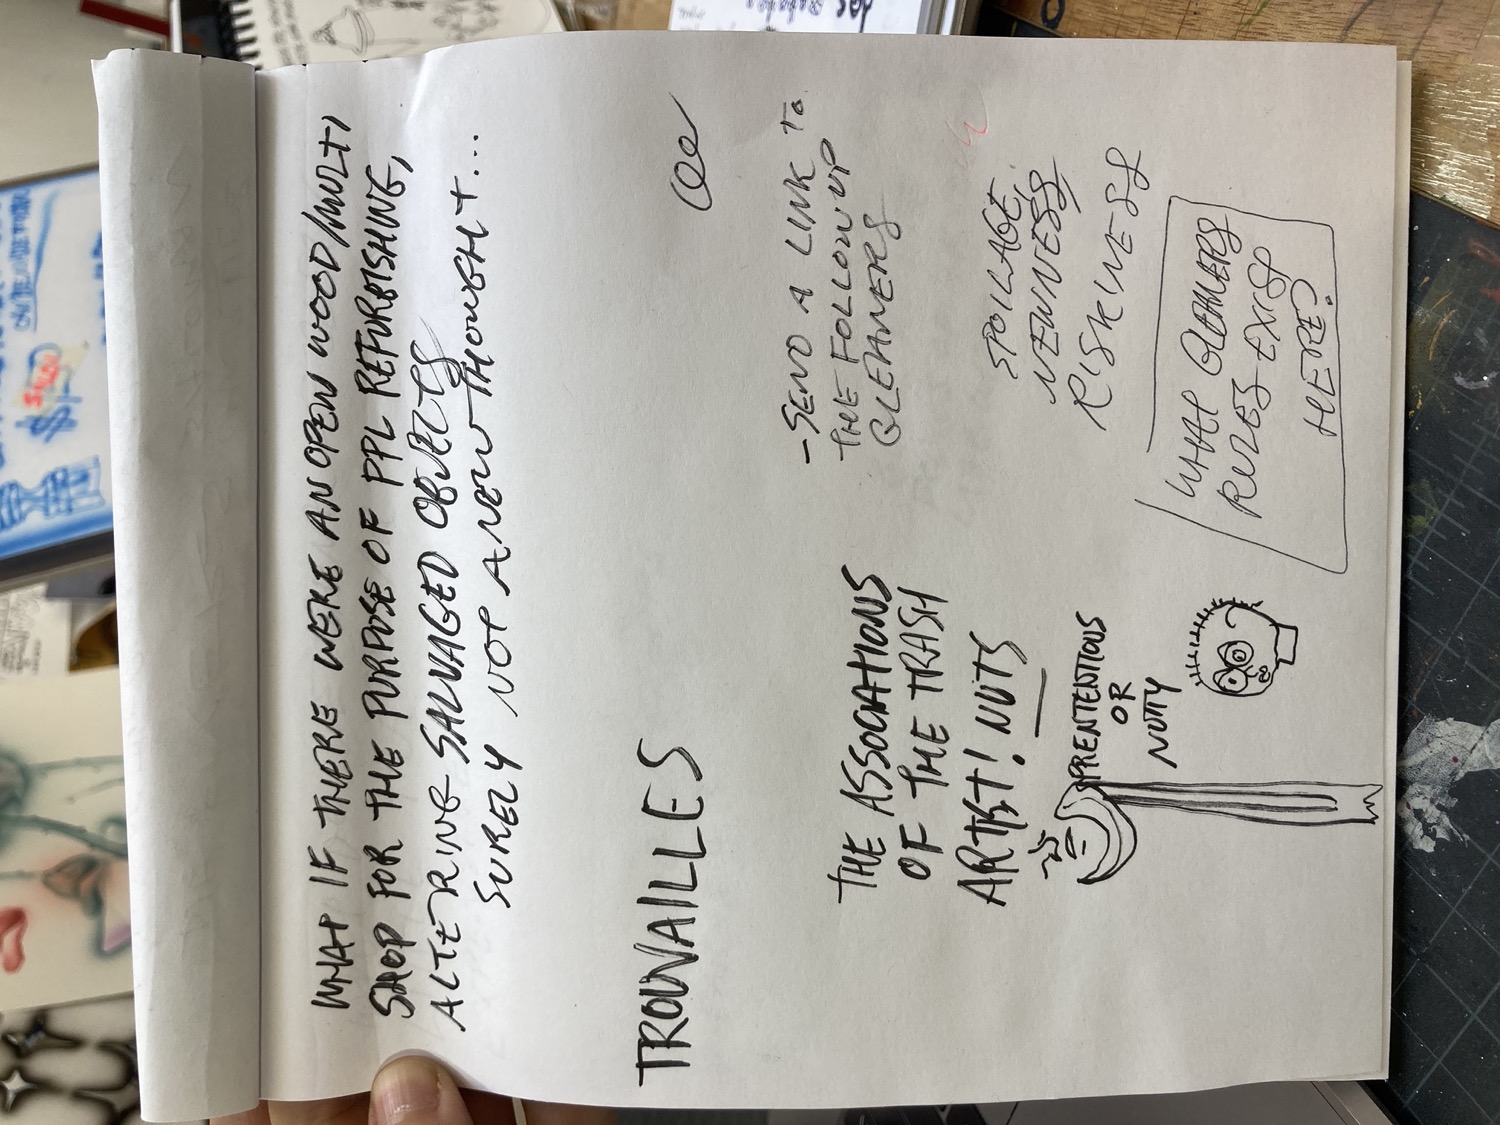 WHAT IF THERE WERE AN OPEN WOOD/MULTI
SHOP FOR THE PURPOSE OF PPL REFURBISHING,
ALTERING SALVAGED OBJECTS
SURELY NOT A NEW THOUGHT...
TROUVAILLES
THE ASSOCIATIONS
OF THE TRASH
ARTIST! NUTS
PRENTENTIOUS
OR
NUTTY
- SEND A LINK TO
THE FOLLOW UP
GLEANERS
SPOILAGE,
NEWNESS
RISKINESS
WHAT GLEANERS
RULES EXIST
HERE?